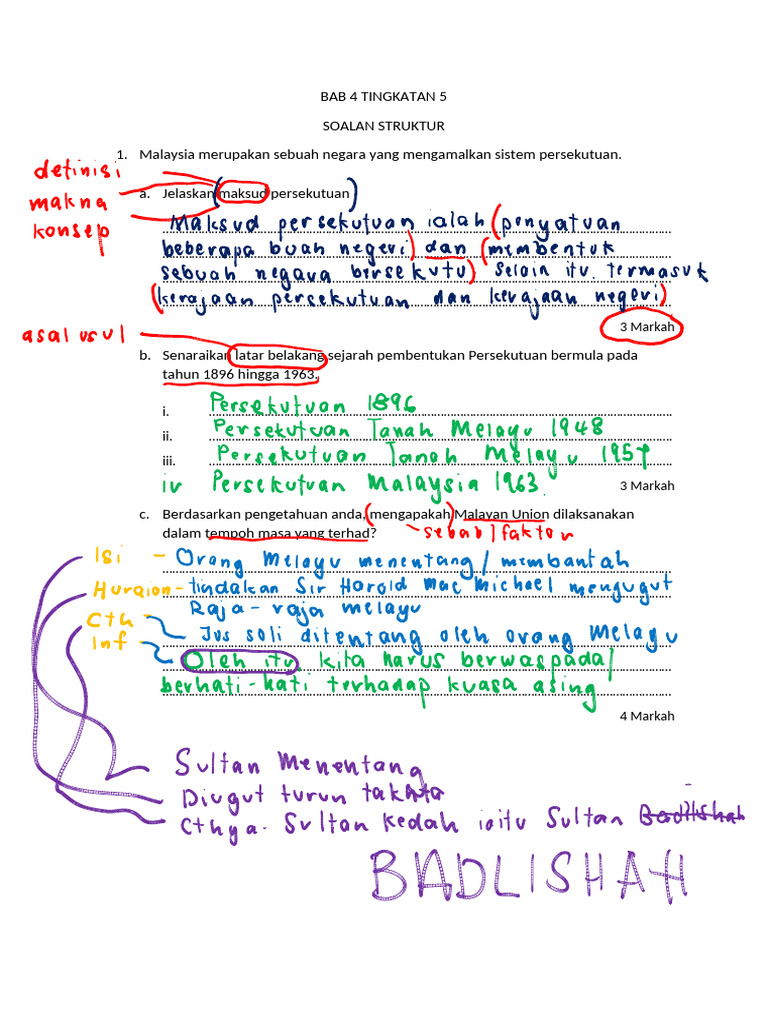 BAB 4 TINGKATAN 5
SOALAN STRUKTUR
1. Malaysia merupakan sebuah negara yang mengamalkan sistem persekutuan.
definisi
makna
konsep
a. Jelaskan (maksud persekutuan)
Maksud persekutuan ialah (penyatuan
beberapa buah negeri) dan (membentuk
sebuah negara bersekutu) Selain itu. termasuk
(kerajaan persekutuan dan kerajaan negeri)
3 Markah
asal usul
b. Senaraikan latar belakang sejarah pembentukan Persekutuan bermula pada
tahun 1896 hingga 1963.
i. Persekutuan 1896
ii. Persekutuan Tanah Melayu 1948
iii. Persekutuan Tanah Melayu 1957
iv Persekutuan Malaysia 1963.
3 Markah
c. Berdasarkan pengetahuan anda, (mengapakah) Malayan Union dilaksanakan
dalam tempoh masa yang terhad?
sebab/faktor
Isi - Orang Melayu menentang/membantah
Huraian - tindakan Sir Harold Mac Michael mengugut
Raja-raja melayu
Cth - Jus soli ditentang oleh orang Melayu
Inf - Oleh itu, kita harus berwaspada/
berhati-hati terhadap kuasa asing
4 Markah
Sultan Menentang
Diugut turun takhta
Cthya. Sultan Kedah iaitu Sultan Badlishah
BADLISHAH